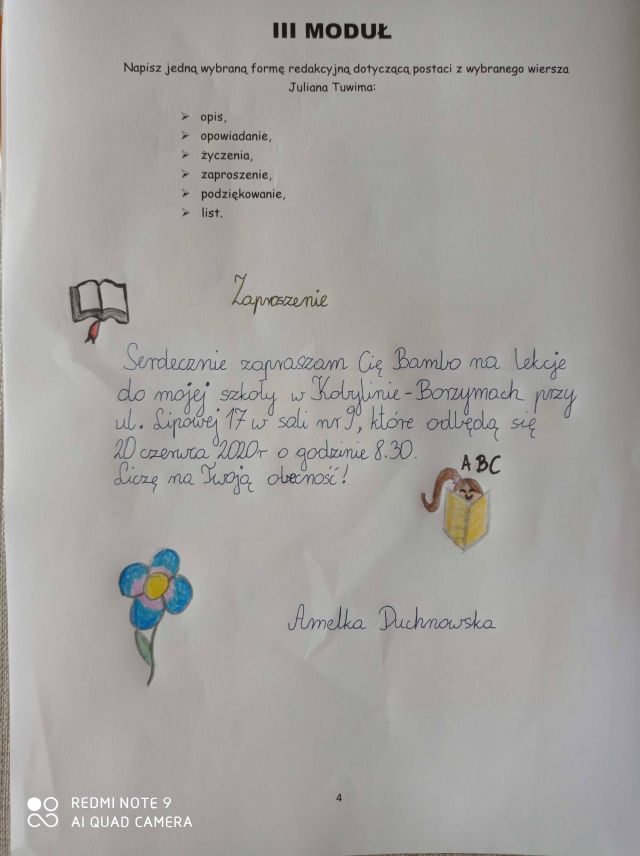 III MODUŁ
Napisz jedną wybraną formę redakcyjną dotyczącą postaci z wybranego wiersza
Juliana Tuwima:
➢ opis,
➢ opowiadanie,
➢ życzenia,
➢ zaproszenie,
➢ podziękowanie,
➢ list.
Zaproszenie
Serdecznie zapraszam Cię Bambo na lekcje
do mojej szkoły w Kobylinie-Borzymach przy
ul. Lipowej 17 w sali nr 9, które odbędą się
20 czerwca 2020r o godzinie 8.30.
Liczę na Twoją obecność!
ABC
Amelka Duchnowska
4
REDMI NOTE 9
AI QUAD CAMERA